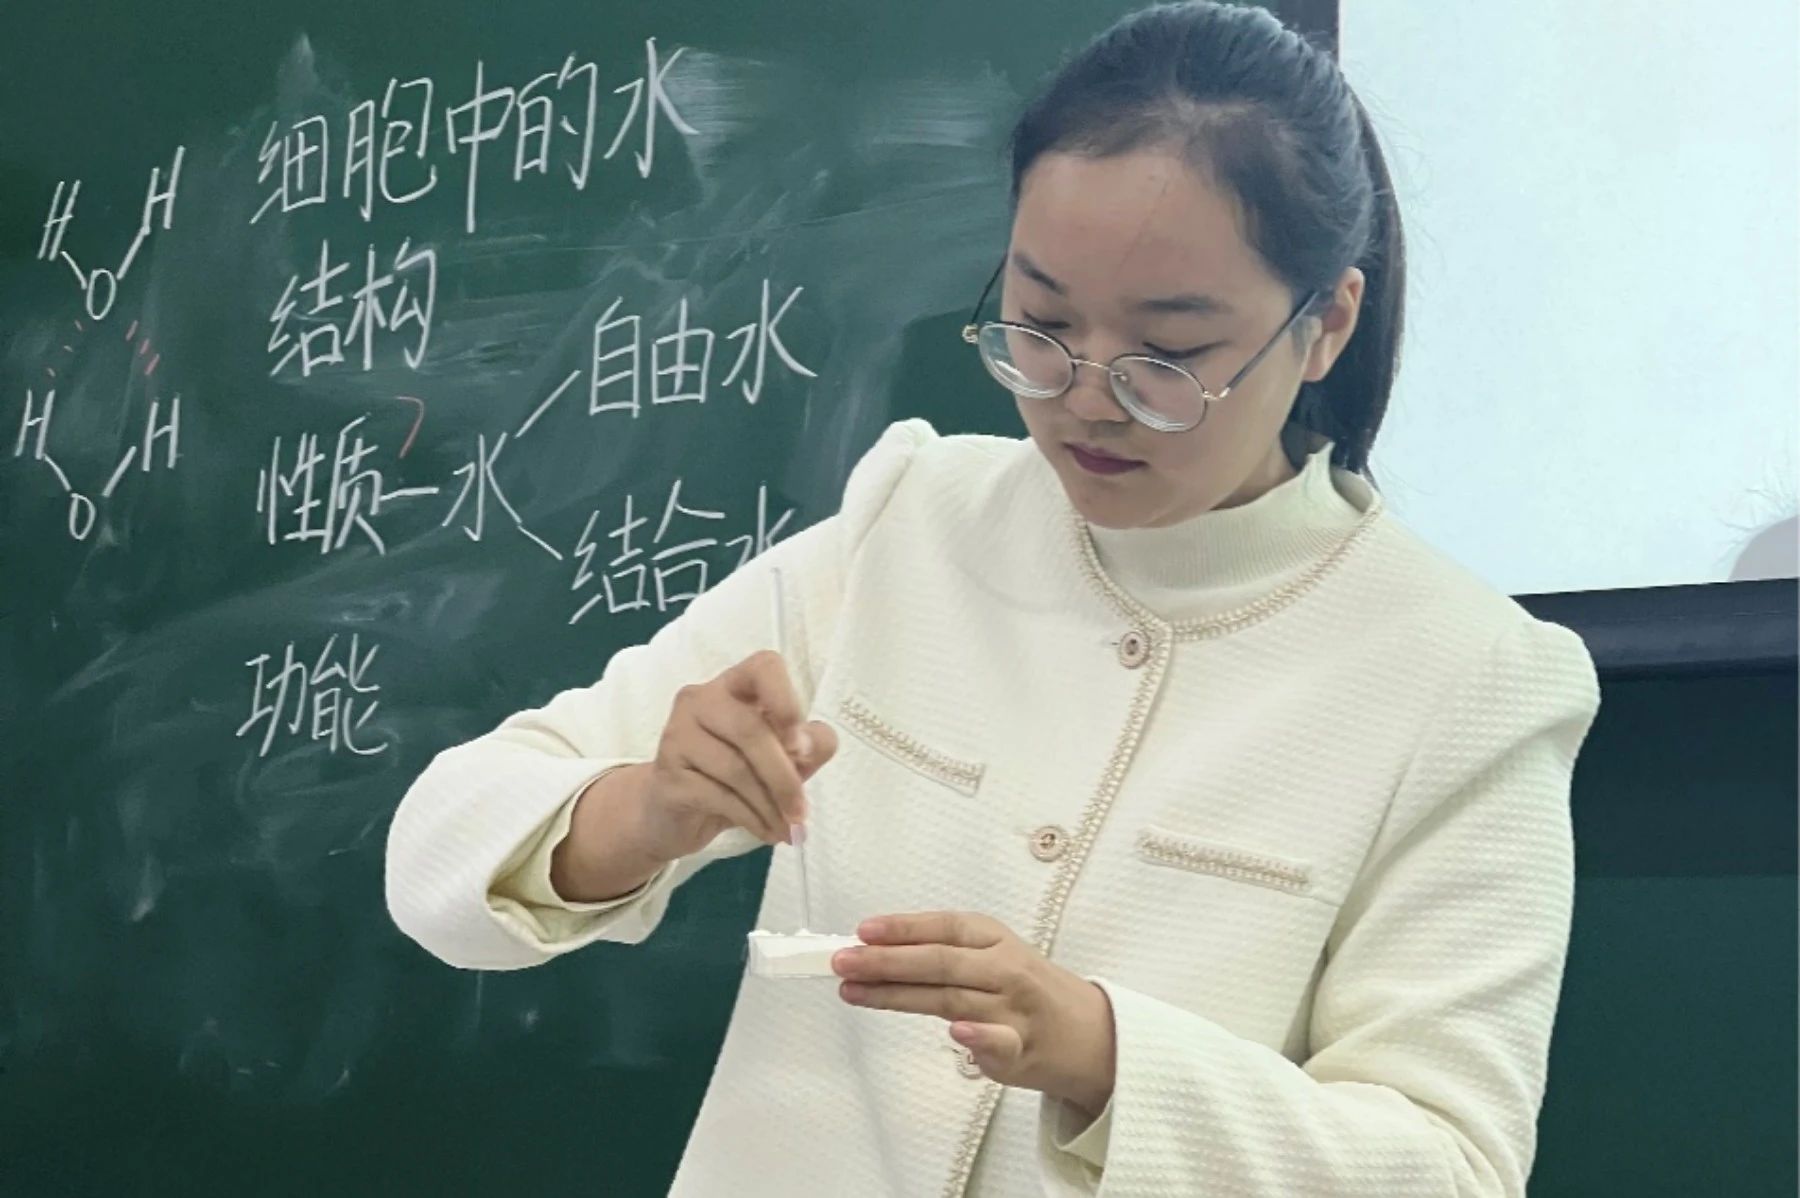 H H
O
H H
O
细胞中的水
结构
性质—水
自由水
结合水
功能